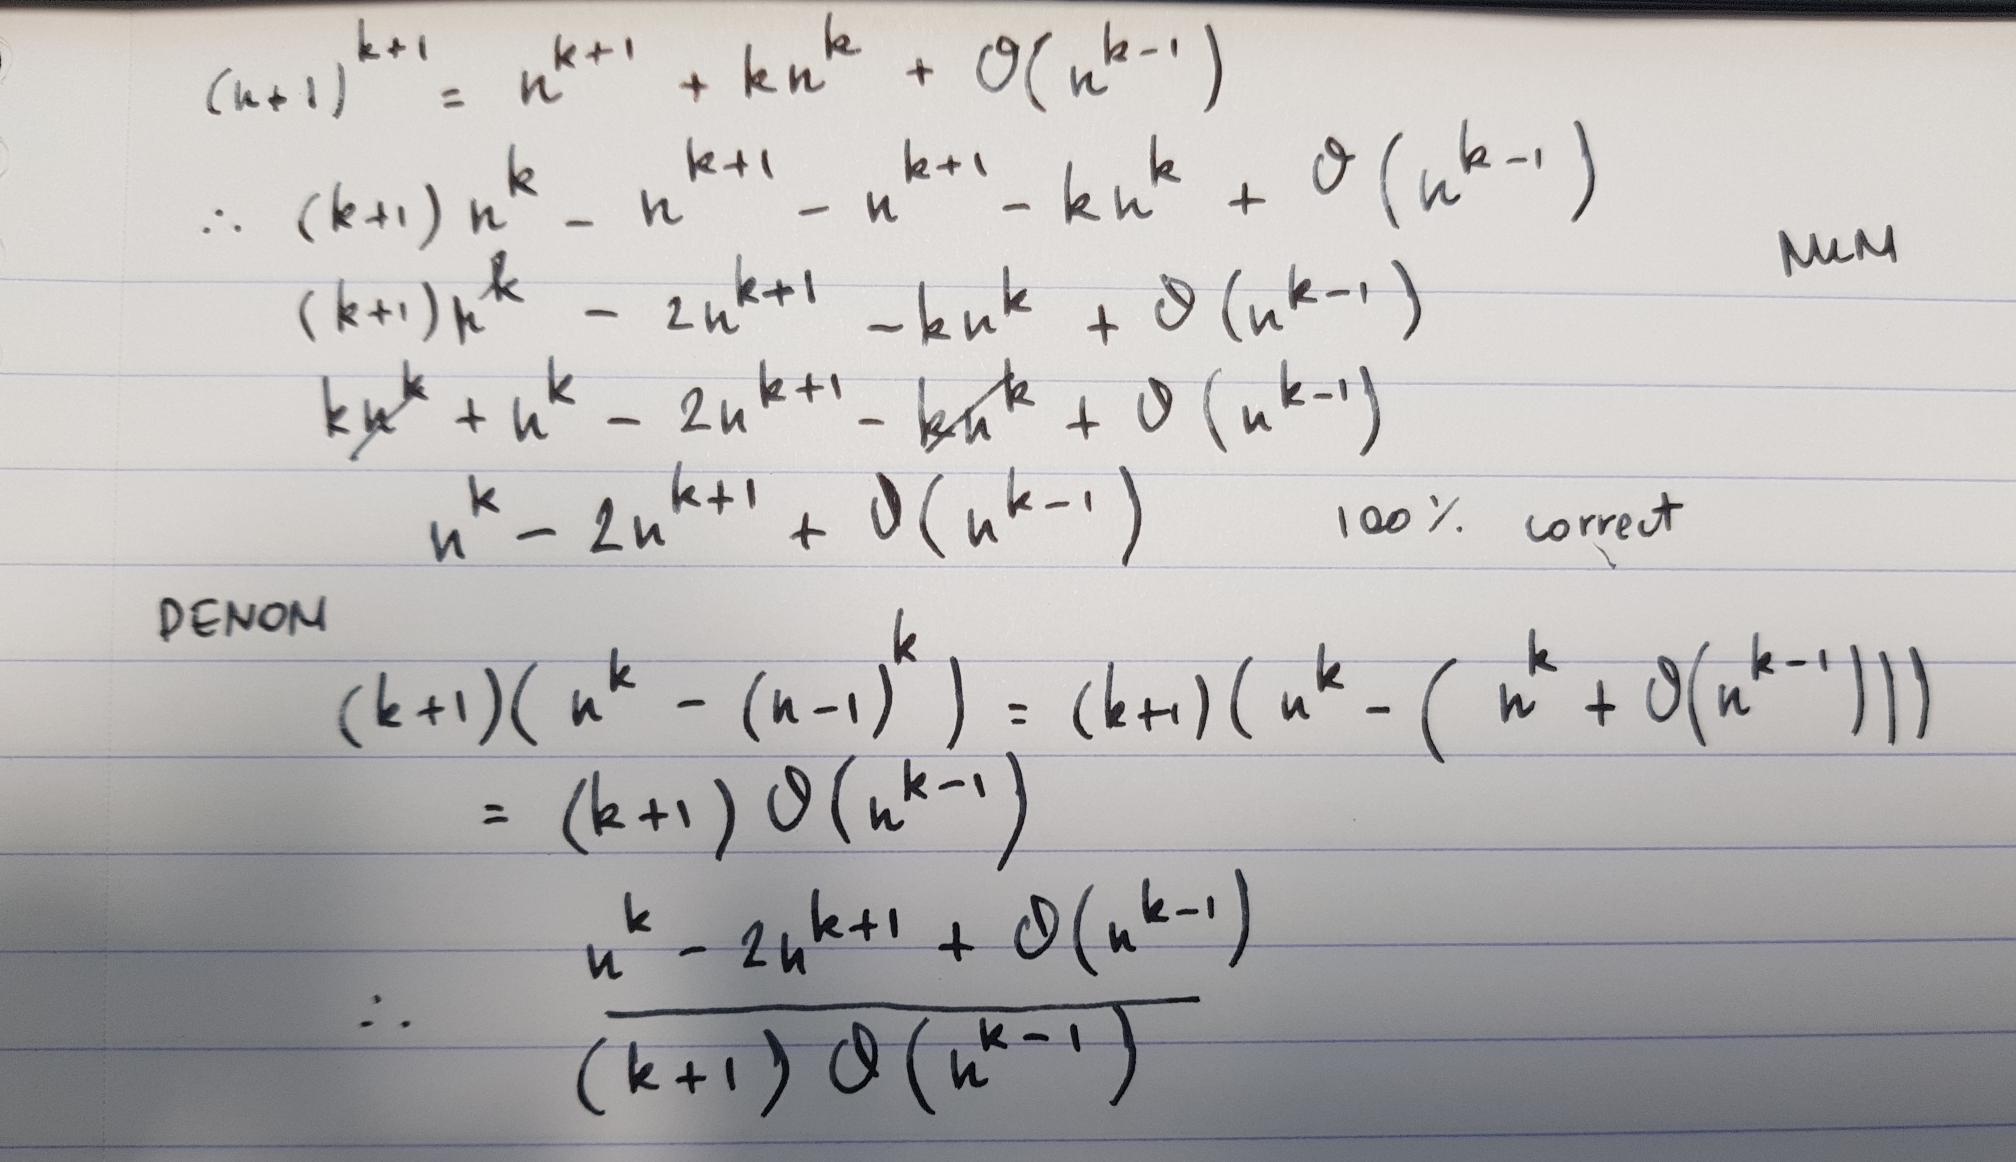 (n+1)^{k+1} = n^{k+1} + kn^k + O(n^{k-1})
∴ (k+1)n^k - n^{k+1} - n^{k+1} - kn^k + O(n^{k-1})
NUM
(k+1)n^k - 2n^{k+1} - kn^k + O(n^{k-1})
kn^k + n^k - 2n^{k+1} - kn^k + O(n^{k-1})
n^k - 2n^{k+1} + O(n^{k-1}) 100% correct
DENOM
(k+1)(n^k - (n-1)^k) = (k+1)(n^k - (n^k + O(n^{k-1})))
= (k+1) O(n^{k-1})
n^k - 2n^{k+1} + O(n^{k-1})
∴
(k+1) O(n^{k-1})